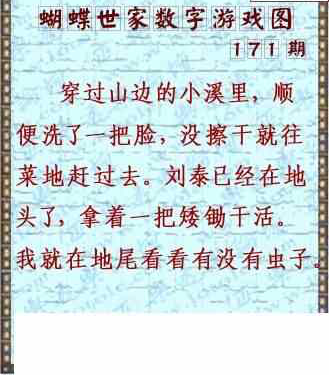 蝴蝶世家数字游戏图
171期
穿过山边的小溪里，顺
便洗了一把脸，没擦干就往
菜地赶过去。刘泰已经在地
头了，拿着一把矮锄干活。
我就在地尾看看有没有虫子。